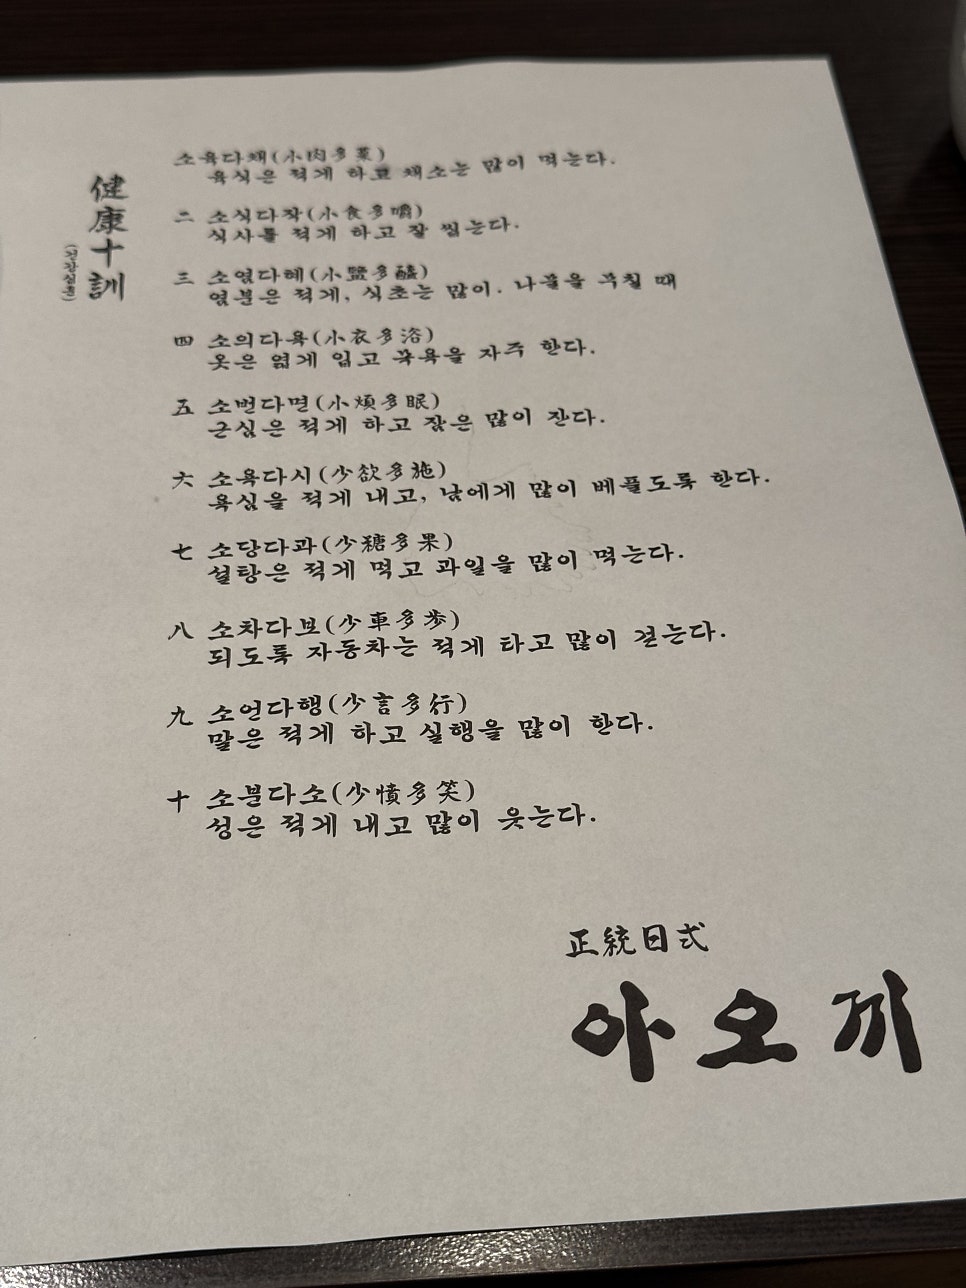 健康十訓
(건강십훈)
소육다채(小肉多菜)
육식은 적게 하고 채소는 많이 먹는다.
二 소식다작(小食多嚼)
식사를 적게 하고 잘 씹는다.
三 소염다혜(小鹽多醯)
염분은 적게, 식초는 많이. 나물을 무칠 때
四 소의다욕(小衣多浴)
옷은 엷게 입고 목욕을 자주 한다.
五 소번다면(小煩多眠)
근심은 적게 하고 잠은 많이 잔다.
六 소욕다시(少欲多施)
욕심을 적게 내고, 남에게 많이 베플도록 한다.
七 소당다과(少糖多果)
설탕은 적게 먹고 과일을 많이 먹는다.
八 소차다보(少車多步)
되도록 자동차는 적게 타고 많이 걷는다.
九 소언다행(少言多行)
말은 적게 하고 실행을 많이 한다.
十 소분다소(少憤多笑)
성은 적게 내고 많이 웃는다.
正統日式
아오끼